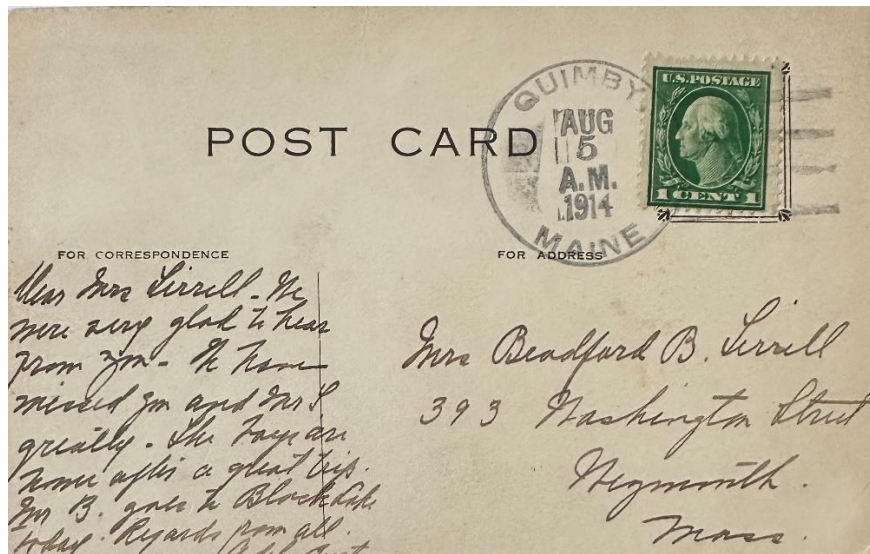 QUIMBY,
AUG
5
A.M.
1914
MAINE
U.S. POSTAGE
1 CENT 1
POST CARD
FOR CORRESPONDENCE
FOR ADDRESS
Dear Mrs Tirrell - We
were very glad to hear
from you - We have
missed you and Mr T
greatly - The boys are
home after a great trip.
Mr B. goes to Black Lake
today. Regards from all.
Mrs Bradford B. Tirrell
393 Washington Street
Weymouth.
Mass.